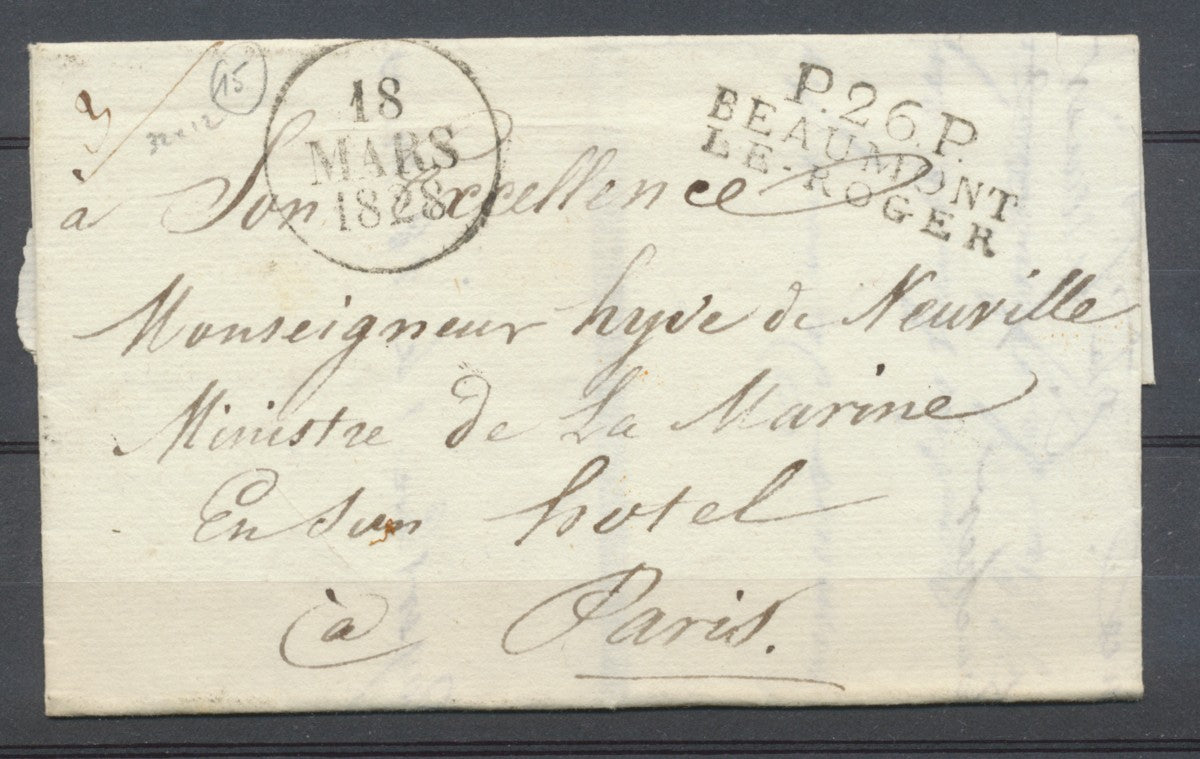 15
18
MARS
1828
P.26.P.
BEAUMONT
LE-ROGER
à Son Excellence
Monseigneur hyde de Neuville
Ministre de La Marine
En son hotel
à Paris.